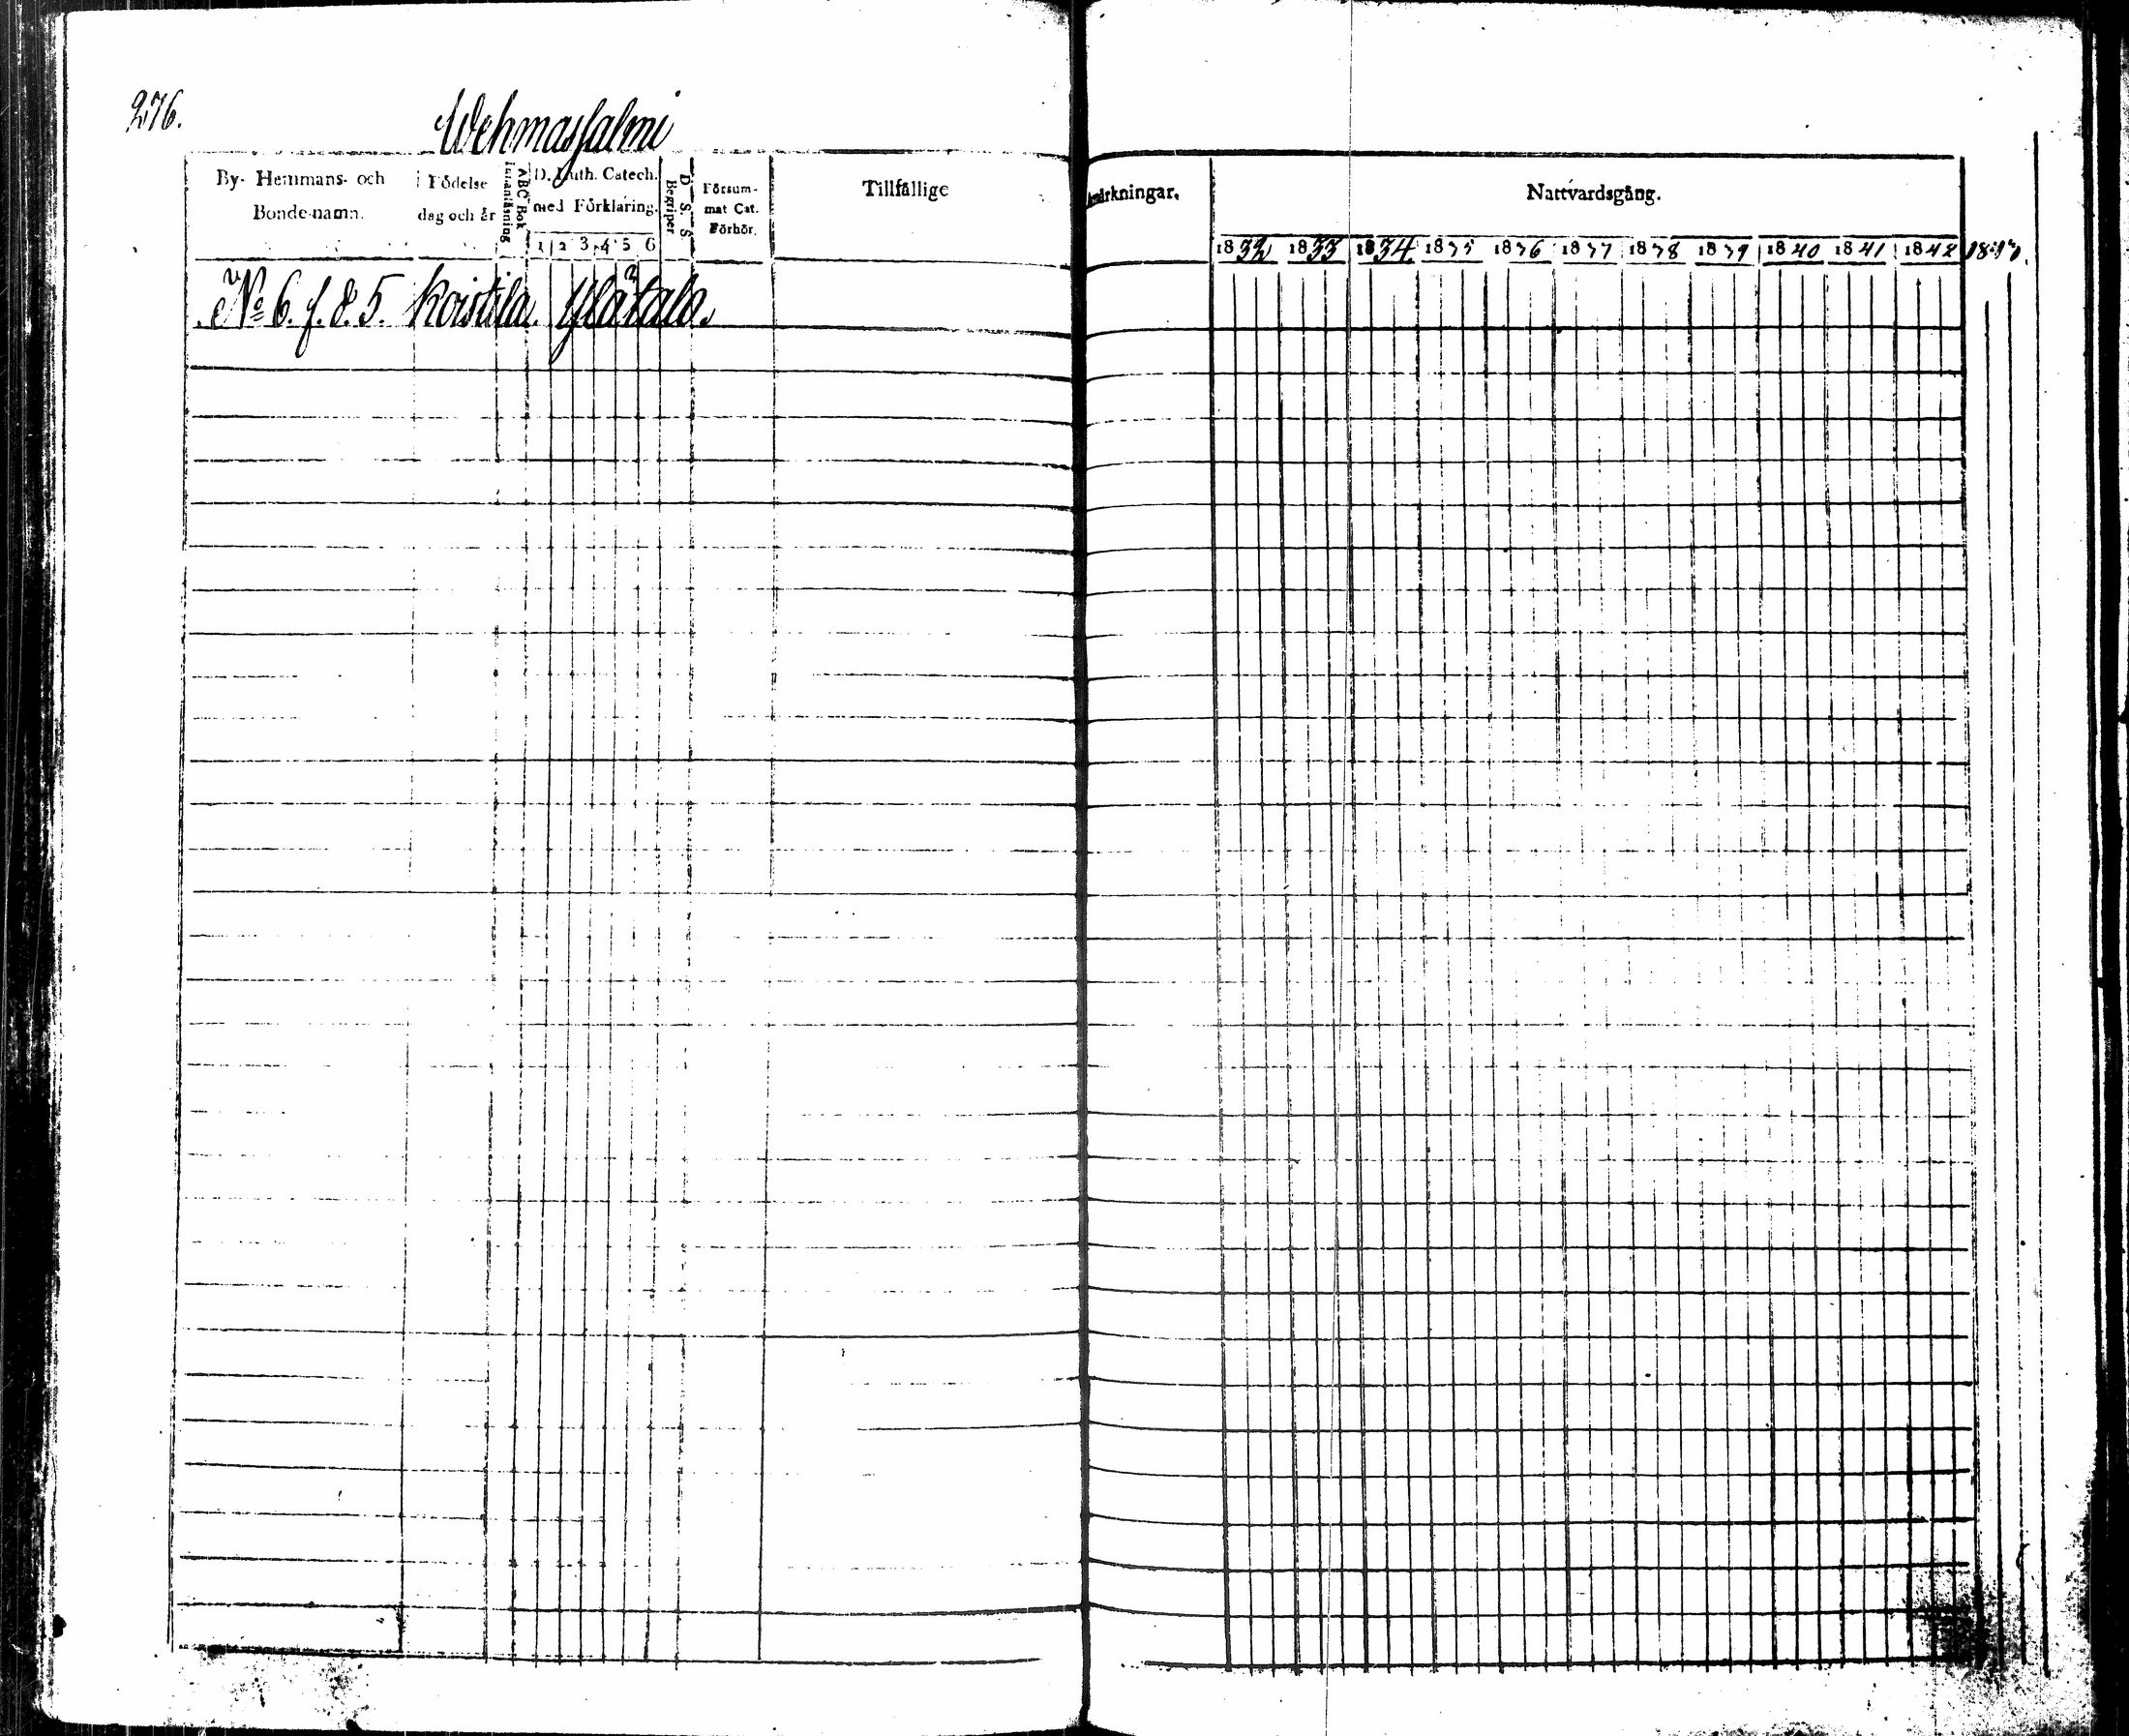 276.
Wehmasjalmi
By- Hemmans- och
Bonde-namn.
Födelse
dag och år
Innanläsning
ABC Bok
D. Luth. Catech.
med Förklaring.
1 2 3 4 5 6
Begriper
D. S. S
Försum-
mat Cat.
Förhör.
Tillfällige
Nattvardsgång.
1832 1833 1834 1835 1836 1837 1838 1839 1840 1841 1842 1843.
No 6. f. d. 5. Koistila. Ylätalo.